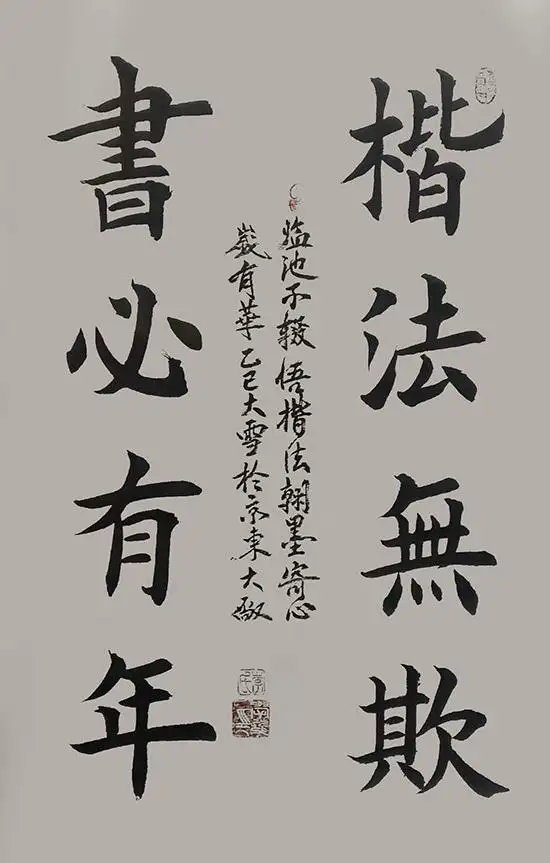 楷法無欺
書必有年
临池不辍悟楷法翰墨寄心
歲有華乙巳大雪於京東大啟